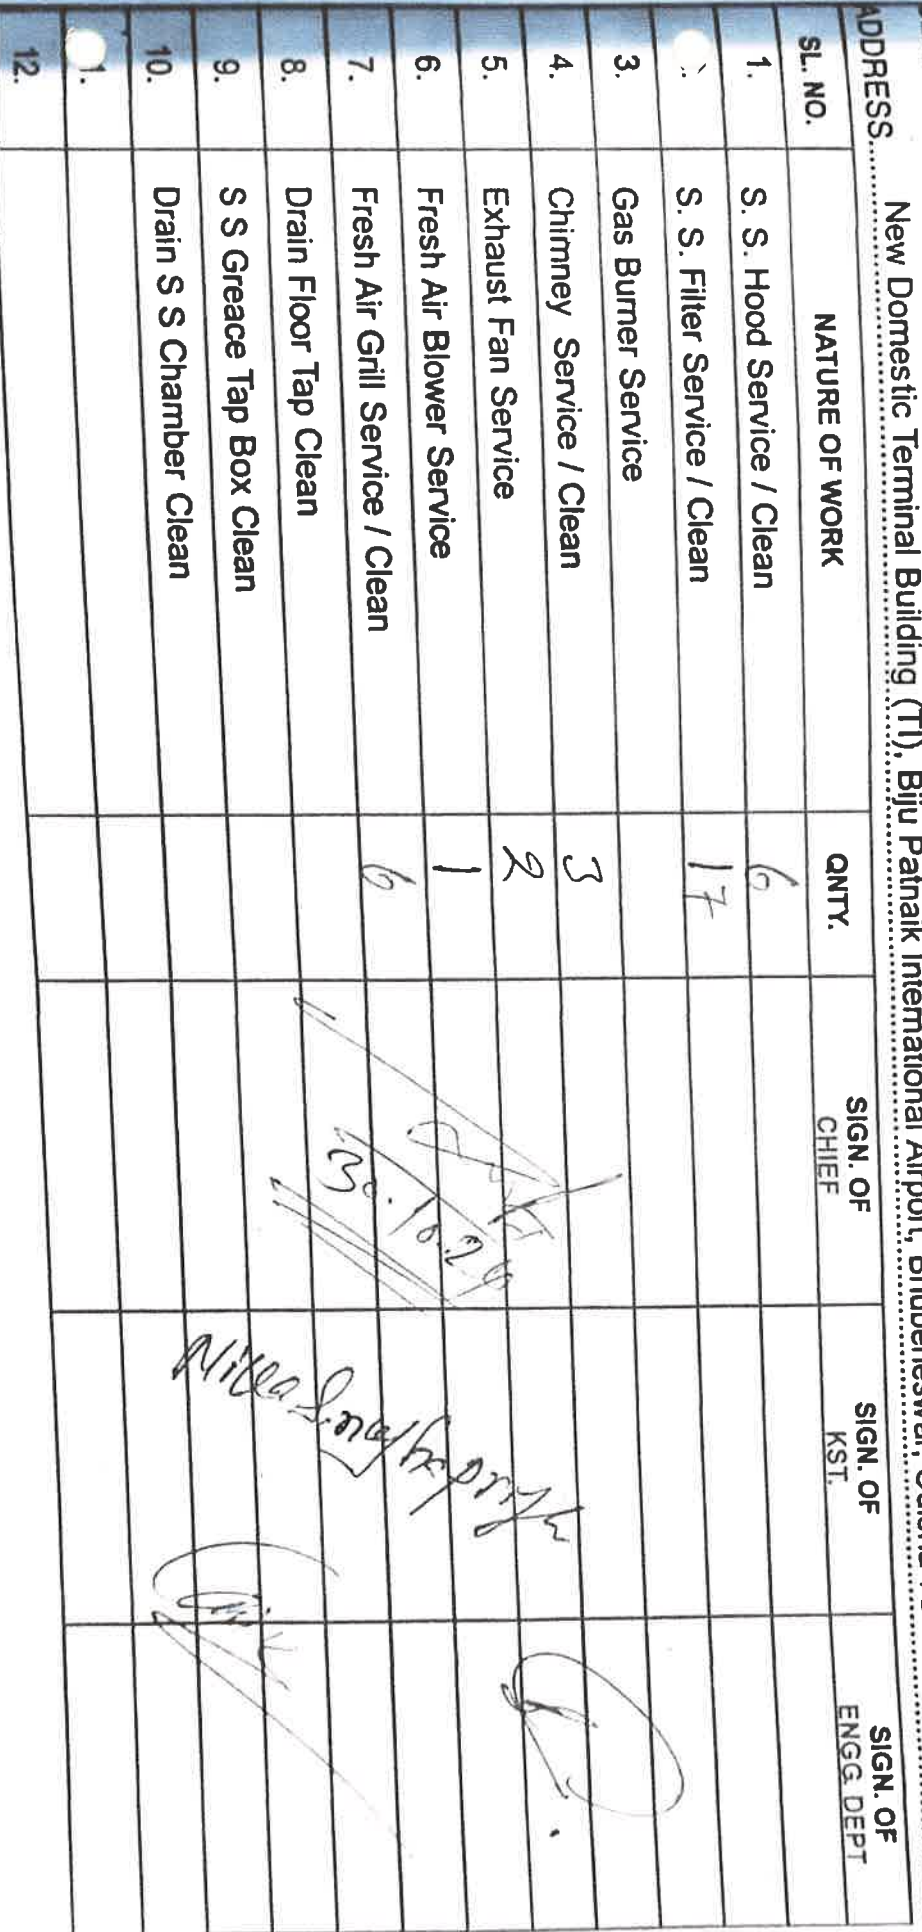 ADDRESS.... New Domestic Terminal Building (TI), Biju Patnaik International Airport, Bhubeneswar,
SL. NO. NATURE OF WORK QNTY. SIGN. OF CHIEF SIGN. OF KST. SIGN. OF ENGG DEPT
1. S. S. Hood Service / Clean 6
S. S. Filter Service / Clean 17
3. Gas Burner Service
4. Chimney Service / Clean 3
5. Exhaust Fan Service 2
6. Fresh Air Blower Service 1
7. Fresh Air Grill Service / Clean 6
8. Drain Floor Tap Clean
9. S S Greace Tap Box Clean
10. Drain S S Chamber Clean
1.
12.